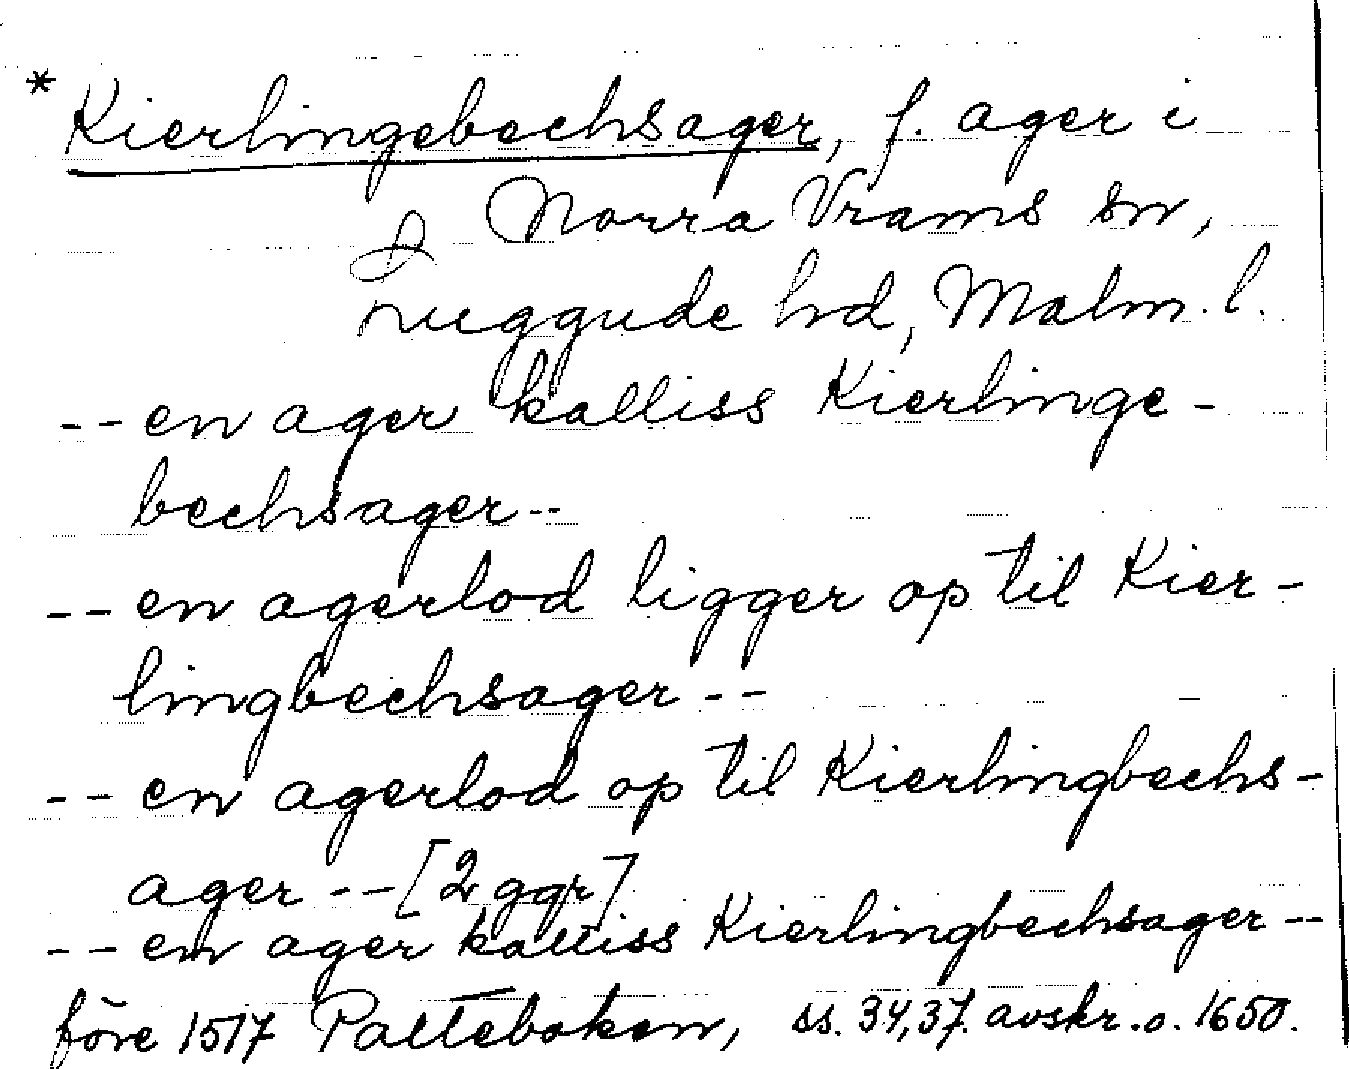 * Kierlingebechsager, f. ager i
Norra Vrams sn,
Luggude hd, Malm. l.
-- en ager kalliss Kierlinge-
bechsager --
-- en agerlod ligger op til Kier-
lingbechsager --
-- en agerlod op til Kierlingbechs-
ager -- [2 ggr]
-- en ager kalliss Kierlingbechsager --
före 1517 Palteboken, ss. 34, 37. avskr. o. 1650.